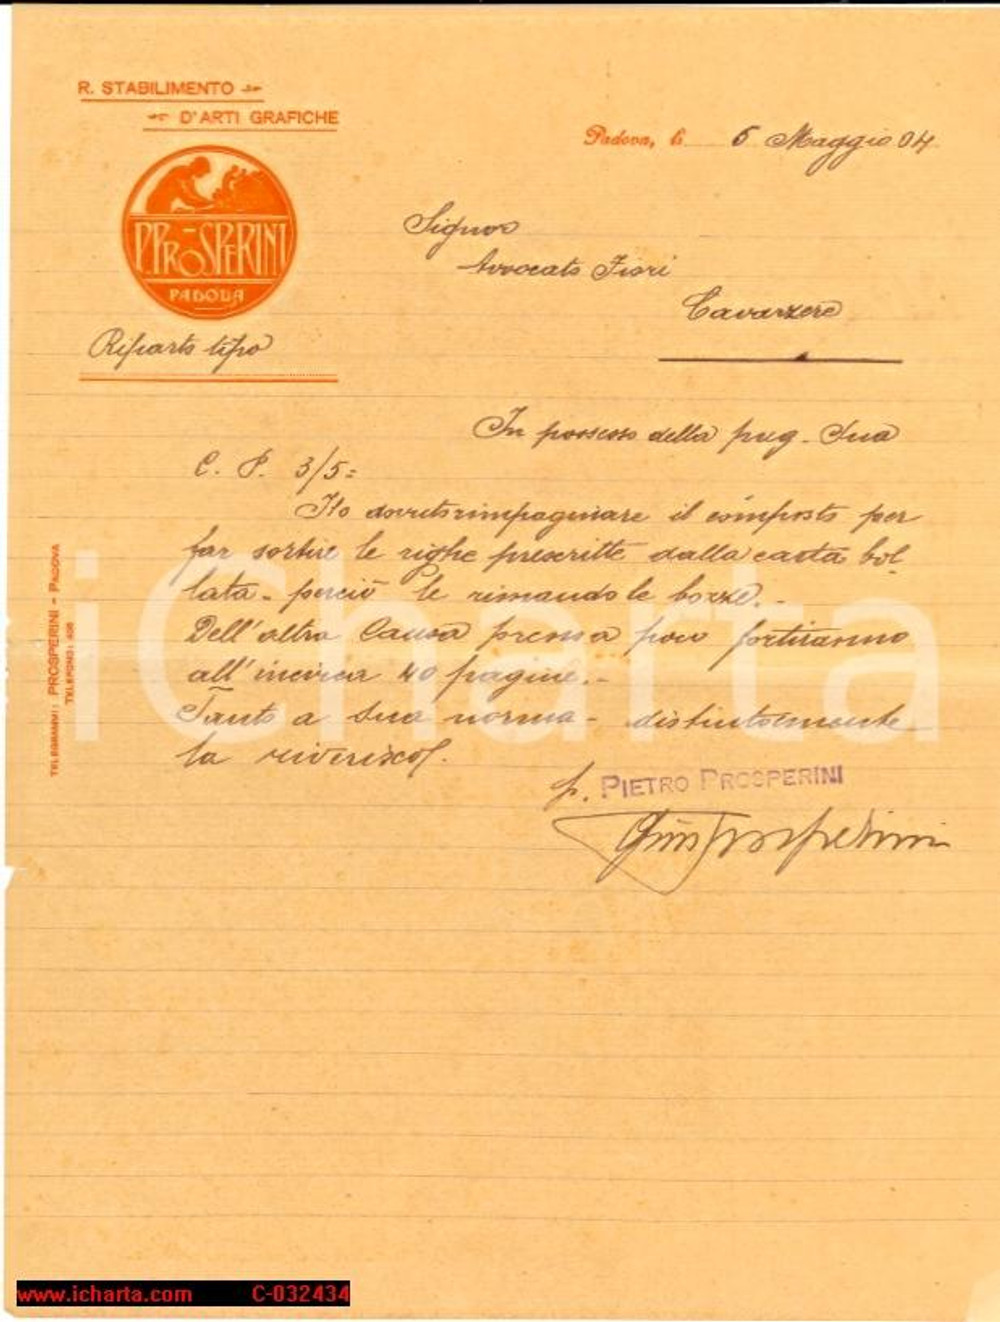 R. STABILIMENTO
D'ARTI GRAFICHE
P. PROSPERINI
PADOVA
Riparto tipo
Padova, li 6 Maggio 04
Signor
Avvocato Fiori
Cavarzere
In possesso della preg. Sua
C. P. 3/5=
Ho dovuto rimpaginare il composto per
far sortire le righe prescritte dalla carta bol-
lata - perciò Le rimando le bozze. -
Dell'altra Causa presso a poco sortiranno
all'incirca 40 pagine. -
Tanto a Sua norma - distintamente
La riverisco.
p. PIETRO PROSPERINI
Prosperini
TELEGRAMMI: PROSPERINI - PADOVA
TELEFONO: 496
iCharta
www.icharta.com C-032434